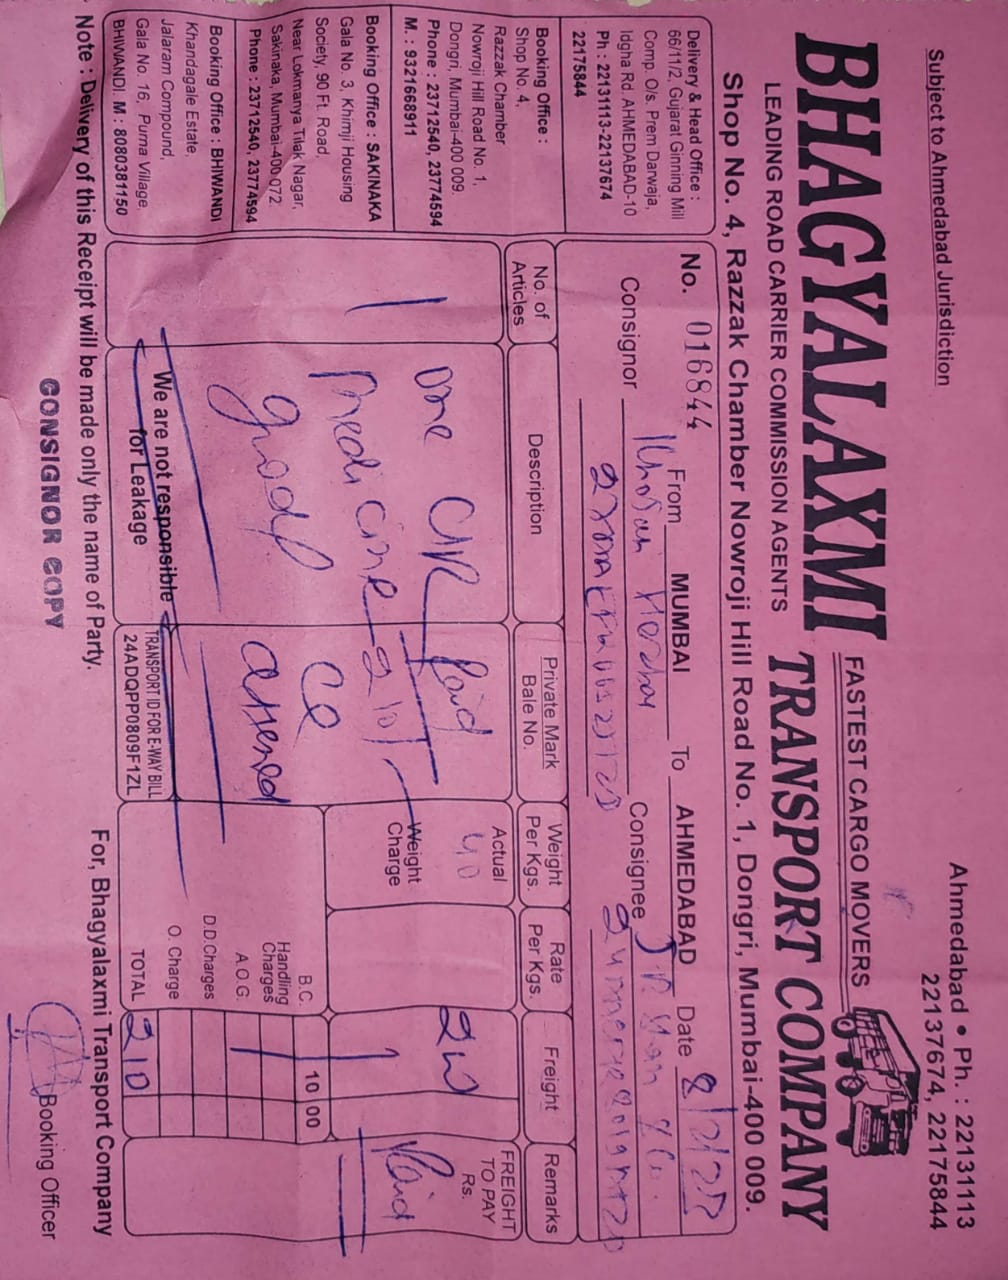 Subject to Ahmedabad Jurisdiction
Ahmedabad • Ph. : 22131113
22137674, 22175844
BHAGYALAXMI
FASTEST CARGO MOVERS
LEADING ROAD CARRIER COMMISSION AGENTS
TRANSPORT COMPANY
Shop No. 4, Razzak Chamber Nowroji Hill Road No. 1, Dongri, Mumbai-400 009.
Delivery & Head Office :
66/11/2, Gujarat Ginning Mill
Comp. O/s. Prem Darwaja,
Idgha Rd. AHMEDABAD-10
Ph : 22131113-22137674
22175844
Booking Office :
Shop No. 4,
Razzak Chamber
Nowroji Hill Road No. 1,
Dongri, Mumbai-400 009.
Phone : 23712540, 23774594
M. : 9321668911
Booking Office : SAKINAKA
Gala No. 3, Khimji Housing
Society, 90 Ft. Road,
Near Lokmanya Tilak Nagar,
Sakinaka, Mumbai-400 072.
Phone : 23712540, 23774594
Booking Office : BHIWANDI
Khandagale Estate,
Jalaram Compound,
Gala No. 16, Purna Village,
BHIWANDI. M : 8080381150
No. 016844 From MUMBAI To AHMEDABAD Date
Consignor Consignee
No. of Articles
Description
Private Mark Bale No.
Weight Per Kgs.
Rate Per Kgs.
Freight
Remarks
1
one
medicine
good
Paid
210
Actual
40
Weight Charge
FREIGHT TO PAY Rs.
Paid
B.C. 10 00
Handling Charges
A.O.G.
D.D.Charges
O. Charge
TOTAL 210
We are not responsible
for Leakage
TRANSPORT ID FOR E-WAY BILL
24ADQPP0809F1ZL
Note : Delivery of this Receipt will be made only the name of Party.
For, Bhagyalaxmi Transport Company
CONSIGNOR COPY
Booking Officer